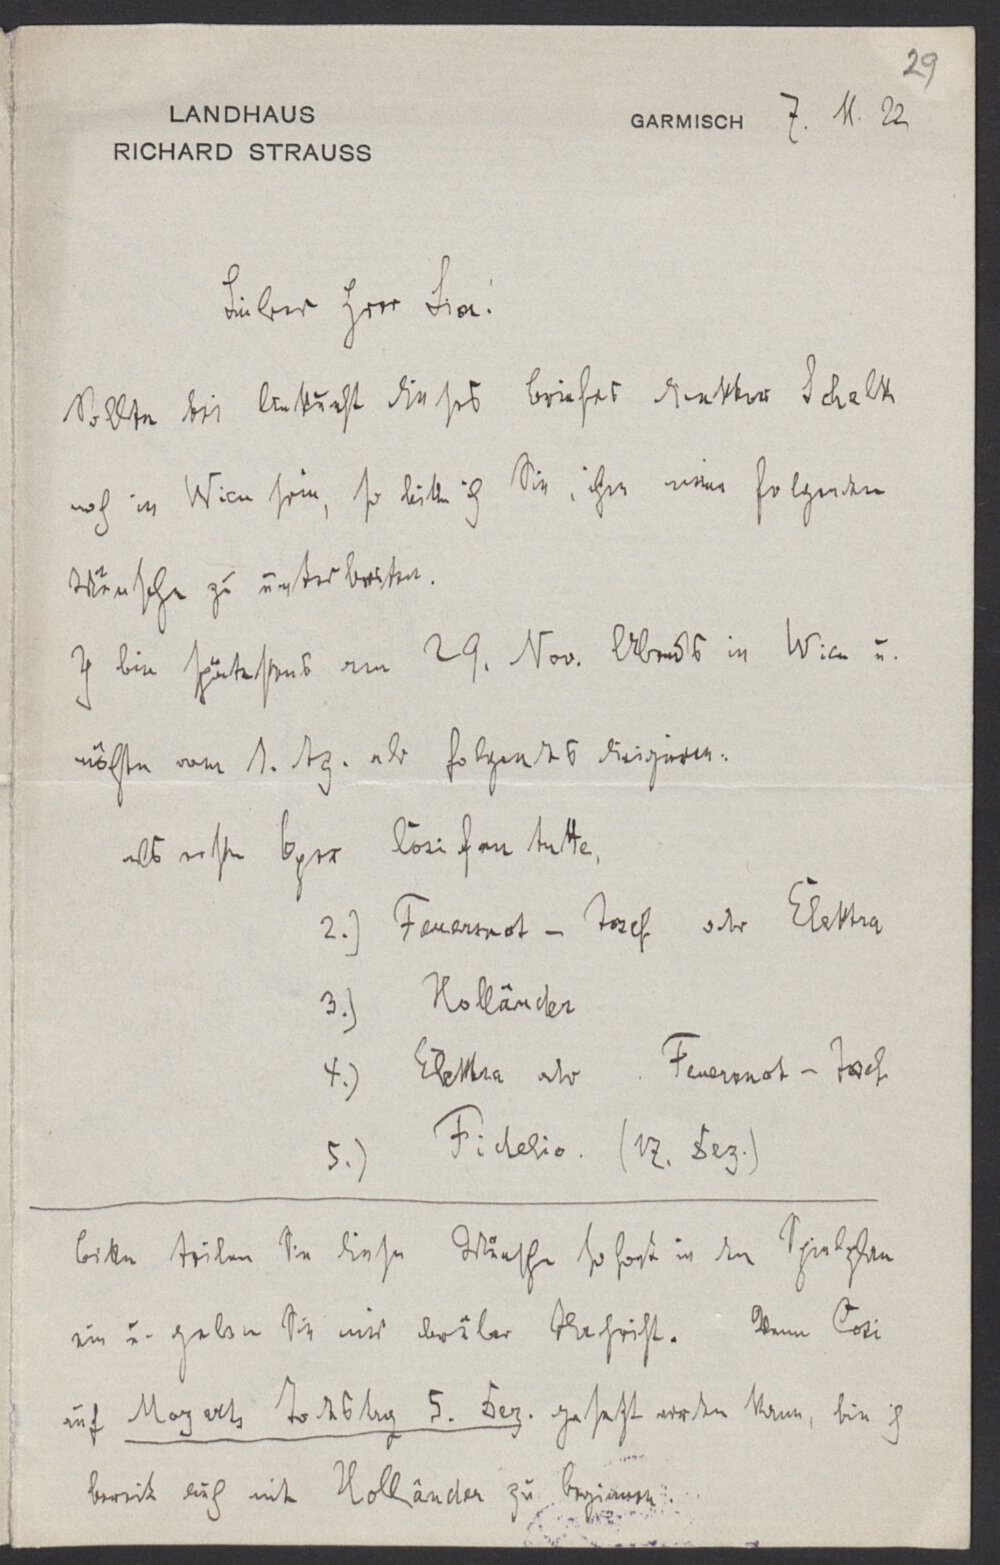 29
LANDHAUS
RICHARD STRAUSS
GARMISCH 7. 11. 22
Lieber Herr Lion!
Sollte bei Ankunft dieses Briefes Direktor Schalk
noch in Wien sein, so bitte ich Sie, ihm meine folgenden
Wünsche zu unterbreiten.
Ich bin spätestens am 29. Nov. Abends in Wien u.
möchte vom 1. Dz. ab folgendes dirigieren:
als erste Oper Cosi fan tutte,
2.) Feuersnot – Josef oder Elektra
3.) Holländer
4.) Elektra oder Feuersnot – Josef
5.) Fidelio. (17. Dez.)
Bitte teilen Sie diese Wünsche sofort in den Spielplan
ein u. geben Sie mir darüber Nachricht. Wenn Cosi
auf Mozarts Todestag 5. Dez. gesetzt werden kann, bin ich
bereit auch mit Holländer zu beginnen.